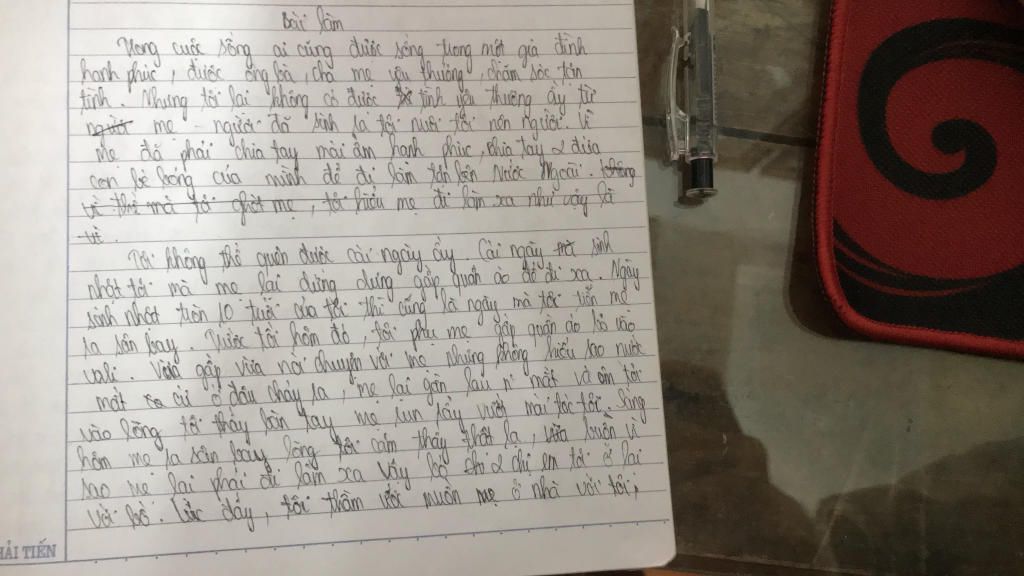 Bài làm
Trong cuộc sống ai cũng được sống trong một gia đình
hạnh phúc, được ông bà, cha mẹ yêu thương, chăm sóc tận
tình. Nhưng tôi lại không có được tình yêu thương ấy từ
người mẹ - người đã sinh ra tôi nuôi tôi nên người. Vì
mẹ đã phải chia tay mái ấm hạnh phúc, chia tay 2 đứa
con bé bỏng của mình để đi làm tận bên nước ngoài. không
vì thế mà tôi ghét mẹ, tôi hiểu mẹ đi làm xa như vậy là
vì.
Tôi không thể quên được cái ngày ấy. Cái ngày mà sinh
nhật tôi mà mẹ lại dửng dưng gấp quần áo để đi xa. Ngày
sinh nhật tròn 10 tuổi của tôi thì cũng là ngày mà tôi tiễn mẹ
ra sân bay. Trước tối hôm đó, tôi phụ mẹ gấp quần áo bỏ vào
vali. Vừa gấp vừa nói chuyện với mẹ nhưng không hiểu sao nước
mắt cứ ở đâu chảy ra, mẹ lại gần lau nước mắt và ôm tôi
vào lòng tôi thấy bàn tay mẹ run rẩy vuốt mái tóc tôi. Sáng
hôm mẹ ra sân bay lòng tôi cảm thấy thật lạ, vừa buồn vì
sao mẹ lại phải đi làm xa vậy bỏ 2 chị em tôi ở lại
với bố. Lúc đấy, tôi thầm ước muốn mẹ ở nhà với tôi,
HẢI TIẾN